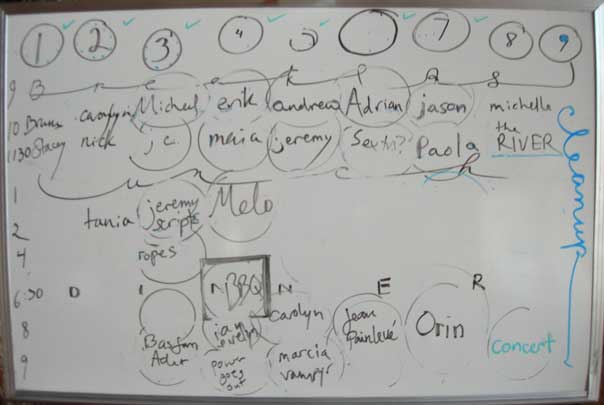 1 2 3 4 5 7 8 9
9 B r e a k f a s
10 Carolyn Michel erik andrew Adrian jason michelle
1130 Stacey nick j.c. maria jeremy Paola the RIVER
L u n c h
cleanup
1 tania jeremy scripts Melo
2
4 ropes
6:30 D I N BBQ N E R
8 carolyn Jean Painlevé Orin concert
9 power goes out marcia vampyr